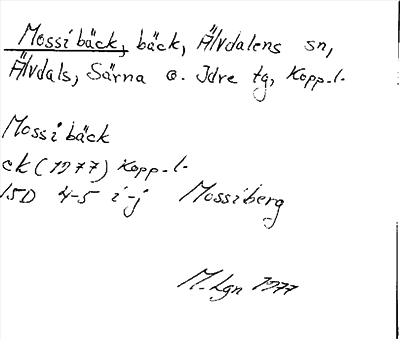 Mossibäck, bäck, Älvdalens sn,
Älvdals, Särna o. Idre tg, Kopp.l.
Mossibäck
ck (1977) Kopp.l.
15D 4-5 i-j Mossiberg
M. Lgn 1977